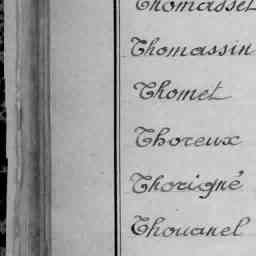 Thomasset
Thomassin
Thomet
Thoreux
Thorigné
Thouanel